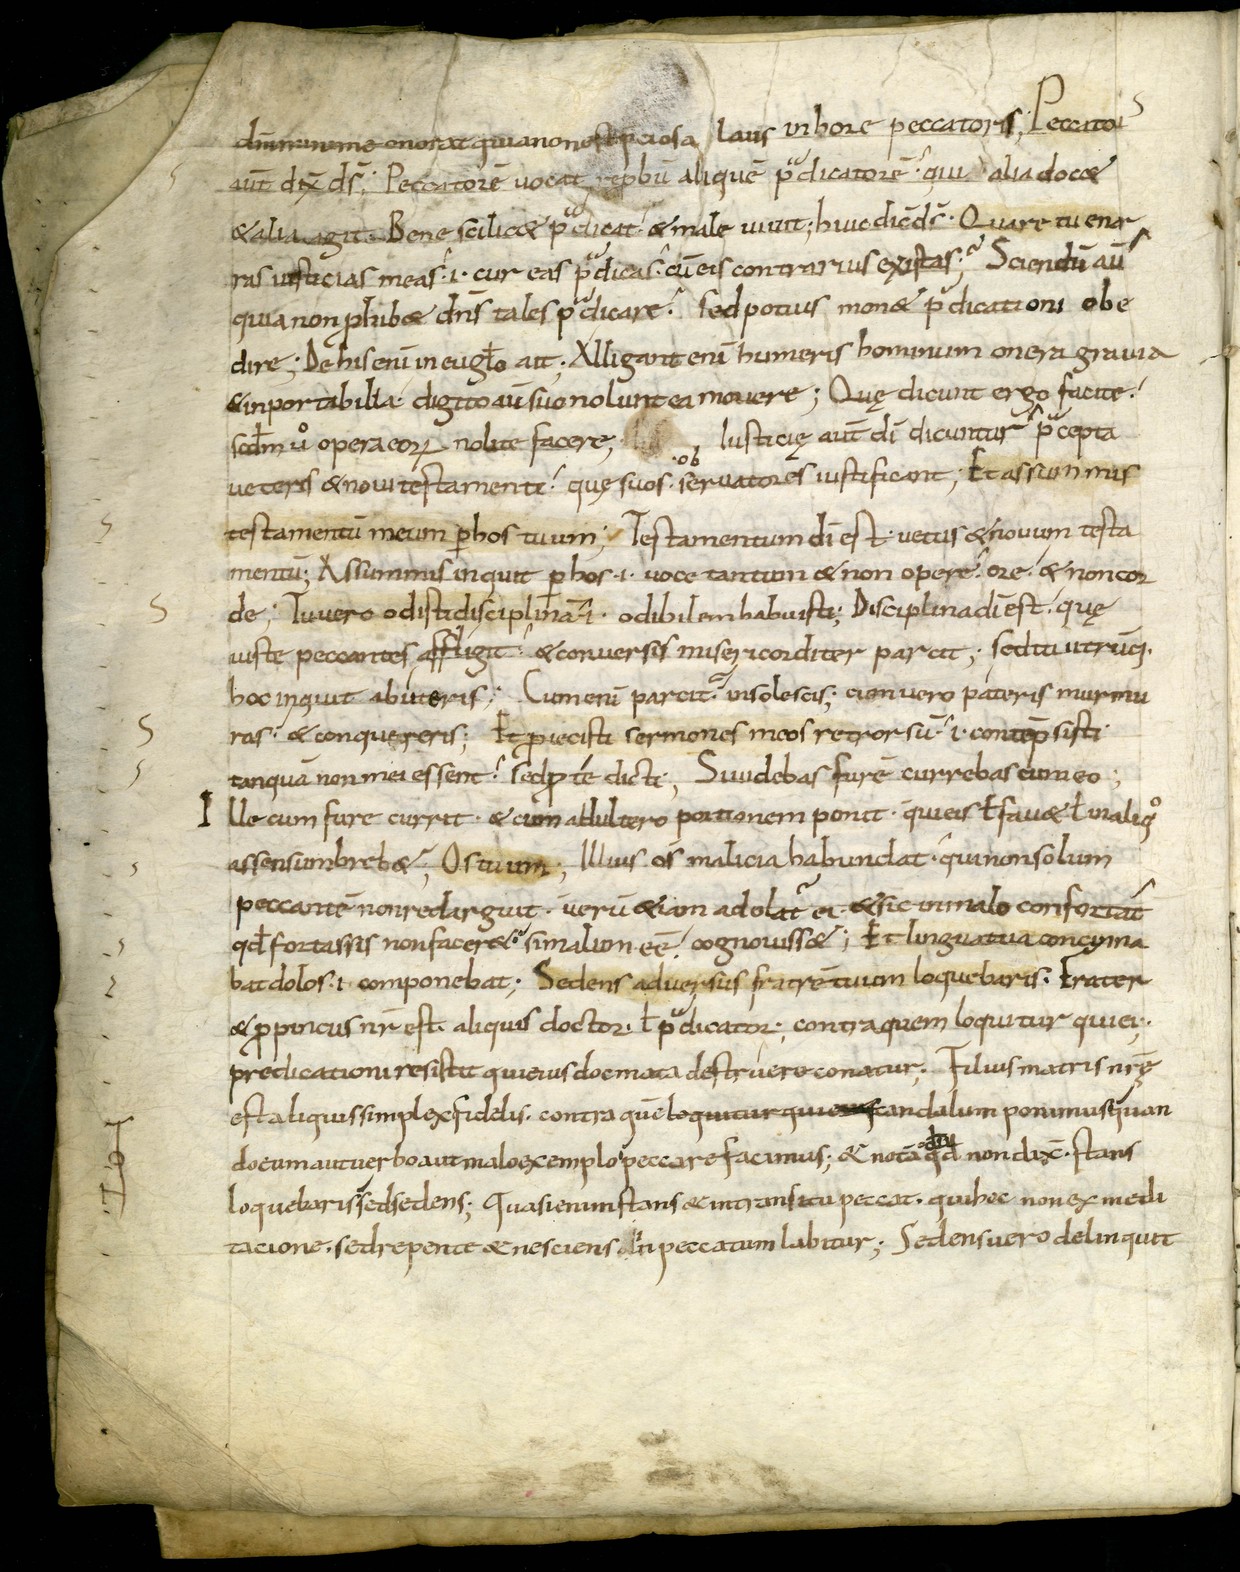 dm̄ minime onorat quia non est speciosa laus in hore peccatoris; Peccatori
aut̄ dix̄ ds̄; Peccatorē uocat aliquē p̄dicatorē· qui alia doc&
& alia agit· Bene scilic& p̄dicat· & male uiuit; huic dic̄ ds̄· Quare tu enar
ras iusticias meas·i· cur eas p̄dicas· cū eis contrarius existas; Sciendū au
quia non phib& dn̄s tales p̄dicare· sed potius mon& p̄dicationi obe
dire; De his enī in eugło ait· Alligant enī humeris hominum onera grauia
& inportabilia· digito aū suo nolunt ea mouere; Quę dicunt ergo facite·
scđm ů opera eoꝝ nolite facere; Iusticię aut̄ dī dicuntur p̄cepta
ueteris & noui testamenti· quę suos ·ob·seruatores iustificant; Et assummis
testamentū meum ꝑ hos tuum; Testamentum dī est· uetus & nouum testa
mentū; Assummis inquit ꝑ hos·i· uoce tantum & non opere· ore· & non cor
de; Tu uero odisti disciplinā·i· odibilem habuisti; Disciplina dī est· quę
iuste peccantes affligit· & conuersis misericorditer parcit; sed tu utrūq·
hoc inquit abuteris; Cum enī parcit· insolescis; cum uero pateris murmu
ras· & conquereris; Et proiecisti sermones meos retrorsū·i· contēpsisti
tanquā non mei essent· sed ꝑ te dicti; Si uidebas furē currebas cum eo;
Ille cum fure currit· & cum adultero portionem ponit· qui eis ł fau& ł in malig̊
assensum breb&; Os tuum; Illius os malicia habundat· qui non solum
peccantē non redarguit· uerū &iam adolat̄ ei· & sic in malo confortat̄
qđ fortassis non facer&· si malum eē cognouiss&; Et lingua tua concinna
bat dolos·i· componebat; Sedens aduersus fratrē tuum loquebaris· Frater
& ꝓpincus nr̄ est· aliquis doctor· ł p̄dicator; contra quem loquitur qui ei·
predicationi resistit qui eius docmata destruere conatur; Filius matris nr̄ę
est aliquis simplex fidelis· contra quē loquitur qui scandalum ponimus quan
docum aut uerbo aut malo exemplo peccare facimus; & notādū qđ non dix̄· stans
loquebaris sed sedens; Quasi enim stans & in transitu peccat· qui hec non ex medi
tacione· sed repente & nesciens· in peccatum labitur; Sedens uero delinquit